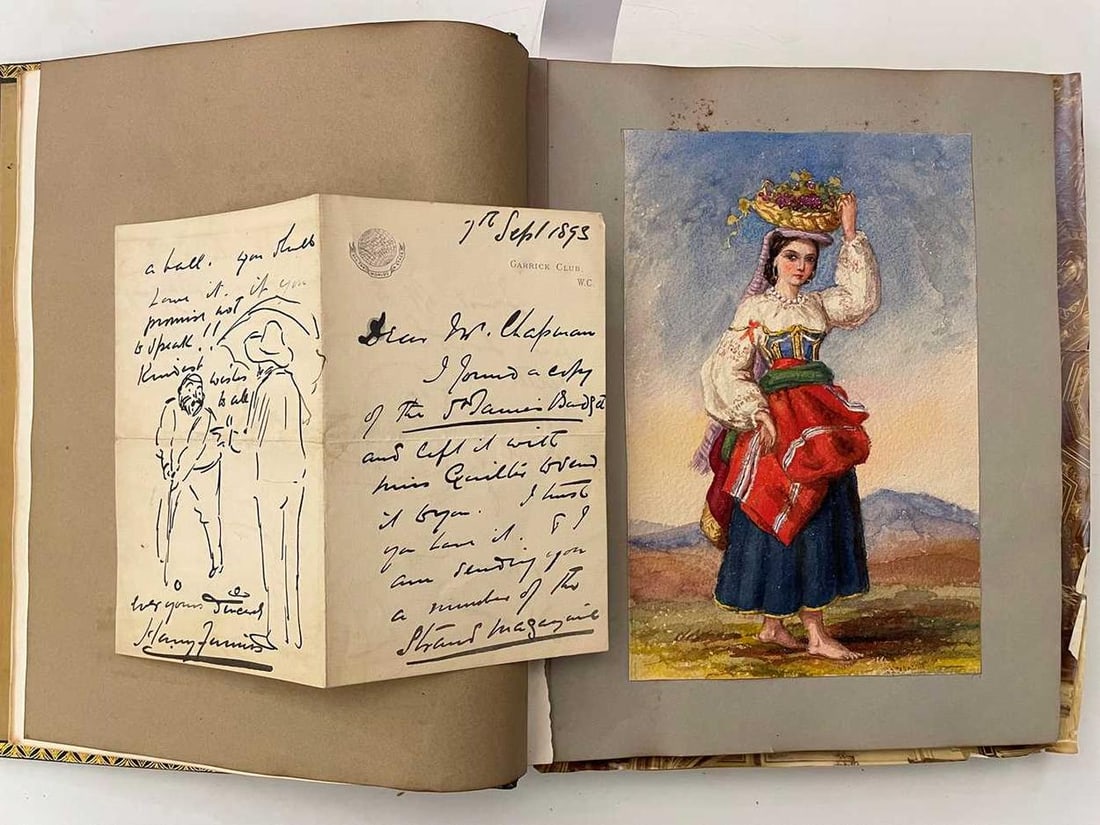 7th Sept 1893
GARRICK CLUB,
W.C.
Dear Mr. Chapman
I found a copy
of the St James Budget
and left it with
Miss Quilter to send
it to you. I trust
you have it. & I
am sending you
a number of the
Strand Magazine
a ball. you shall
have it if you
promise not
to speak!!
Kindest wishes
to all
Ever yours
Harry Furniss